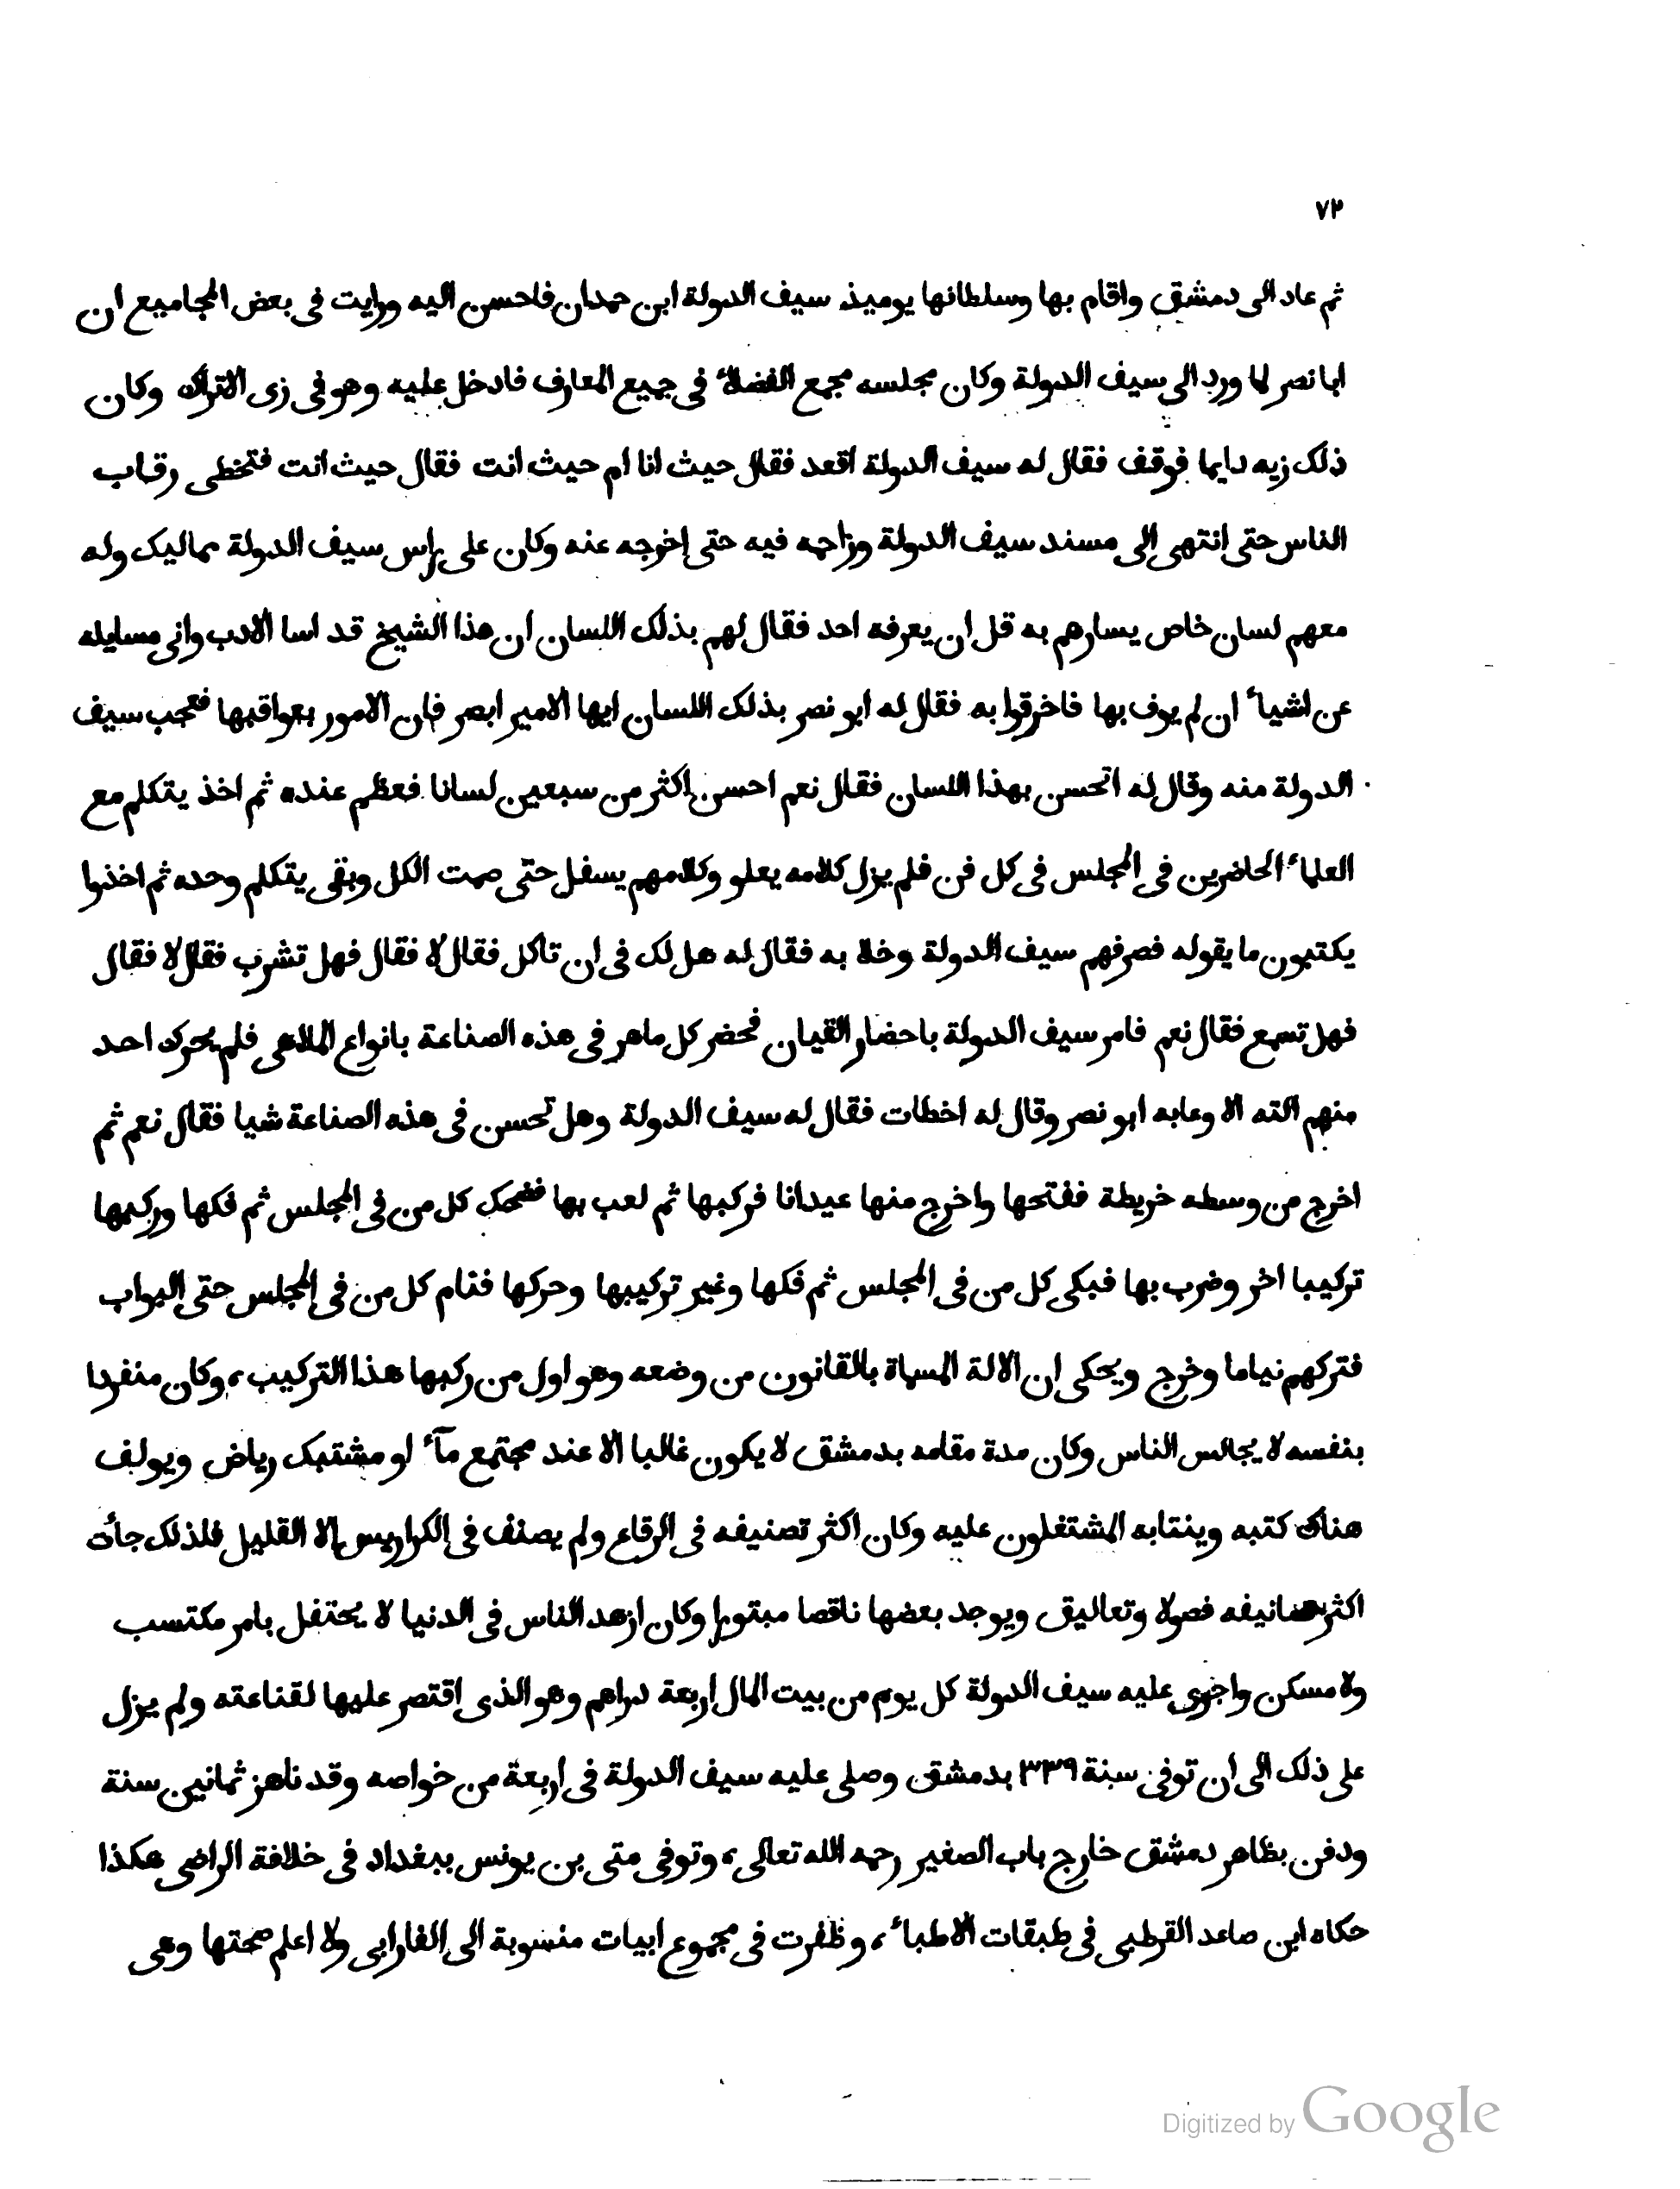 ٧٢
ثم عاد الى دمشق واقام بها وسلطانها يوميذ سيف الدولة ابن حمدان فاحسن اليه ورايت فى بعض المجاميع ان
ابا نصر لما ورد الى سيف الدولة وكان مجلسه مجمع الفضلاء فى جميع المعارف فادخل عليه وهو فى زى الاتراك وكان
ذلك زيه دايما فوقف فقال له سيف الدولة اقعد فقال حيث انا ام حيث انت فقال حيث انت فتخطى رقاب
الناس حتى انتهى الى مسند سيف الدولة وزاحمه فيه حتى اخرجه عنه وكان على راس سيف الدولة مماليك وله
معهم لسان خاص يسارهم به قل ان يعرفه احد فقال لهم بذلك اللسان ان هذا الشيخ قد اسا الادب وانى مسايله
عن اشياء ان لم يوف بها فاخرقوا به فقال له ابو نصر بذلك اللسان ايها الامير ابصر فان الامور بعواقبها فعجب سيف
الدولة منه وقال له اتحسن بهذا اللسان فقال نعم احسن اكثر من سبعين لسانا فعظم عنده ثم اخذ يتكلم مع
العلماء الحاضرين فى المجلس فى كل فن فلم يزل كلامه يعلو وكلامهم يسفل حتى صمت الكل وبقى يتكلم وحده ثم اخذوا
يكتبون ما يقوله فصرفهم سيف الدولة وخلا به فقال له هل لك فى ان تاكل فقال لا فقال فهل تشرب فقال لا فقال
فهل تسمع فقال نعم فامر سيف الدولة باحضار القيان فحضر كل ماهر فى هذه الصناعة بانواع الملاهى فلم يحرك احد
منهم آلته الا وعابه ابو نصر وقال له اخطات فقال له سيف الدولة وهل تحسن فى هذه الصناعة شيا فقال نعم ثم
اخرج من وسطه خريطة ففتحها واخرج منها عيدانا فركبها ثم لعب بها فضحك كل من فى المجلس ثم فكها وركبها
تركيبا اخر وضرب بها فبكى كل من فى المجلس ثم فكها وغير تركيبها وحركها فنام كل من فى المجلس حتى البواب
فتركهم نياما وخرج ويحكى ان الالة المسماة بالقانون من وضعه وهو اول من ركبها هذا التركيب، وكان منفردا
بنفسه لا يجالس الناس وكان مدة مقامه بدمشق لا يكون غالبا الا عند مجتمع مآء او مشتبك رياض ويولف
هناك كتبه وينتابه المشتغلون عليه وكان اكثر تصنيفه فى الرقاع ولم يصنف فى الكراريس الا القليل فلذلك جأت
اكثر تصانيفه فصولا وتعاليق ويوجد بعضها ناقصا مبتورا وكان ازهد الناس فى الدنيا لا يحتفل بامر مكتسب
ولا مسكن واجرى عليه سيف الدولة كل يوم من بيت المال اربعة دراهم وهو الذى اقتصر عليها لقناعته ولم يزل
على ذلك الى ان توفى سنة ٣٣٩ بدمشق وصلى عليه سيف الدولة فى اربعة من خواصه وقد ناهز ثمانين سنة
ودفن بظاهر دمشق خارج باب الصغير رحمه الله تعالى، وتوفى متى بن يونس ببغداد فى خلافة الراضى هكذا
حكاه ابن صاعد القرطبى فى طبقات الاطباء، وظفرت فى مجموع ابيات منسوبة الى الفارابى ولا اعلم صحتها وهى
Digitized by Google